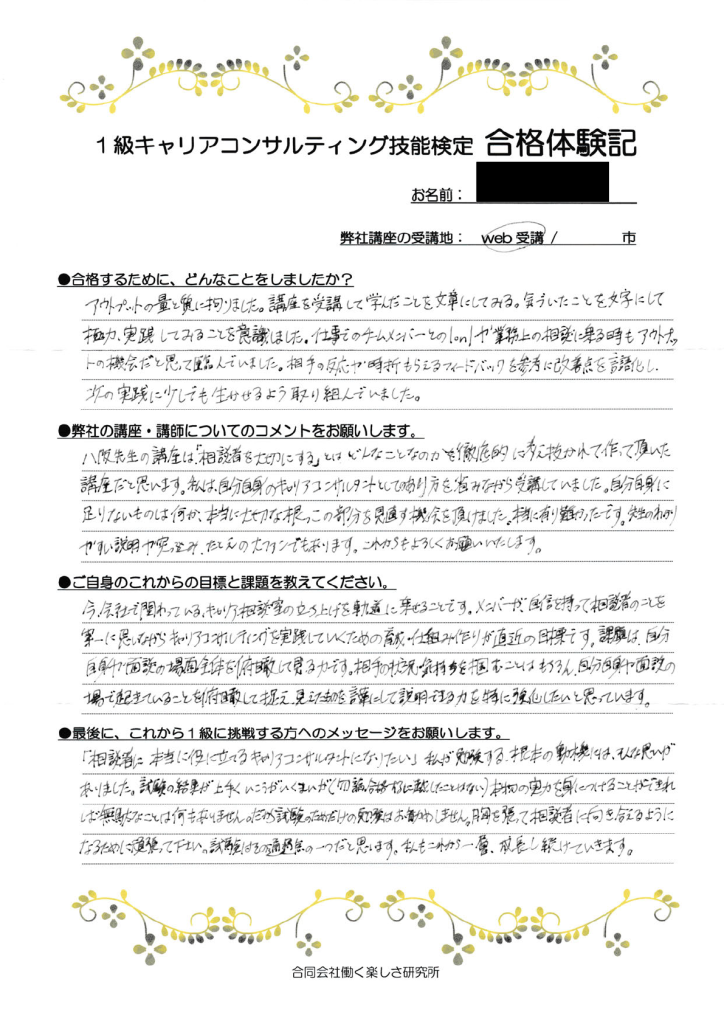 1級キャリアコンサルティング技能検定 合格体験記
お名前：
弊社講座の受講地： web受講 / 市
●合格するために、どんなことをしましたか？
アウトプットの量と質に拘りました。講座を受講して学んだことを文章にしてみる。気づいたことを文字にして
極力、実践してみることを意識しました。仕事でのチームメンバーとの1on1や業務上の相談に乗る時もアウトプッ
トの機会だと思って臨んでいました。相手の反応や時折もらえるフィードバックを参考に改善点を言語化し、
次の実践に少しでも生かせるよう取り組んでいました。
●弊社の講座・講師についてのコメントをお願いします。
八阪先生の講座は、「相談者を大切にする」とはどんなことなのかを徹底的に考え抜かれて作って頂いた
講座だと思います。私は、自分自身のキャリアコンサルタントとしてのあり方を省みながら受講していました。自分自身に
足りないものは何か、本当に大切な根っこの部分を見直す機会を頂けました。本当に有り難かったです。先生のわかり
やすい説明や突っ込み、たとえの大ファンでもあります。これからもよろしくお願いいたします。
●ご自身のこれからの目標と課題を教えてください。
今、会社で関わっている、キャリア相談室の立ち上げを軌道に乗せることです。メンバーが自信を持って相談者のことを
第一に思いながらキャリアコンサルティングを実践していくための育成、仕組み作りが直近の目標です。課題は、自分
自身や面談の場面全体を俯瞰して見る力です。相手の状況・気持ちを掴むことはもちろん、自分自身や面談の
場で起きていることを俯瞰して捉え、見えたものを言葉にして説明できる力を特に強化したいと思っています。
●最後に、これから1級に挑戦する方へのメッセージをお願いします。
「相談者に本当に役に立てるキャリアコンサルタントになりたい」私が勉強する、根本の動機には、そんな思いが
ありました。試験の結果が上手くいこうがいくまいが(勿論合格に越したことはない)本物の実力を身につけることができれ
ば無駄なことは何もありません。だから試験のためだけの勉強はお薦めしません。胸を張って相談者に向き合えるように
なるために頑張って下さい。試験はその通過点の一つだと思います。私もこれから一層、成長し続けていきます。
合同会社働く楽しさ研究所